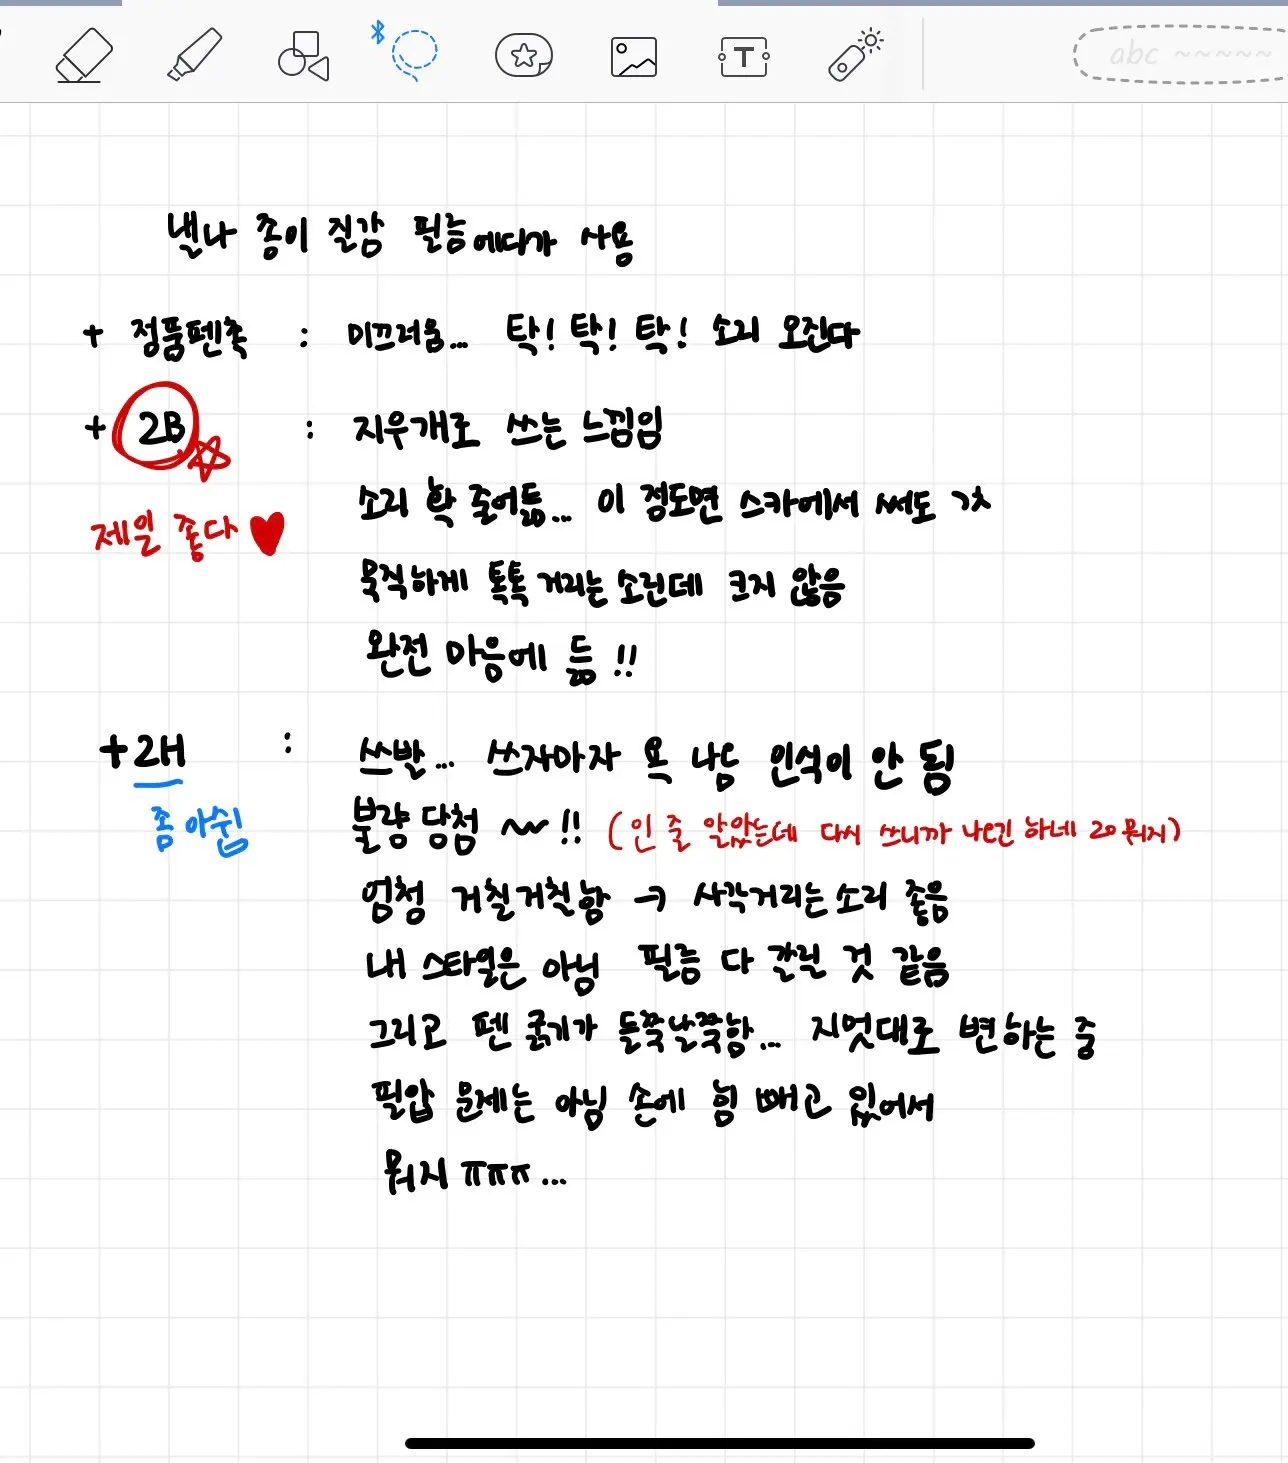 abc ~~~~~
T
낼나 종이 질감 필름에다가 사용
+ 정품펜촉 : 미끄러움... 탁! 탁! 탁! 소리 오진다
+ 2B : 지우개로 쓰는 느낌임
소리 확 줄어듦... 이 정도면 스카에서 써도 ㄱㅊ
제일 좋다 ♥
묵직하게 톡톡 거리는 소린데 크지 않음
완전 마음에 듦 !!
+ 2H : 쓰발... 쓰자마자 욕 나옴 인식이 안 됨
좀 아쉽
불량 당첨 ~~ !! (인 줄 알았는데 다시 쓰니까 나오긴 하네 20 뭐지)
엄청 거칠거칠함 → 사각거리는 소리 좋음
내 스타일은 아님 필름 다 갈릴 것 같음
그리고 펜 굵기가 들쭉날쭉함... 지멋대로 변하는 중
필압 문제는 아님 손에 힘 빼고 있어서
뭐지 ㅠㅠㅠ...